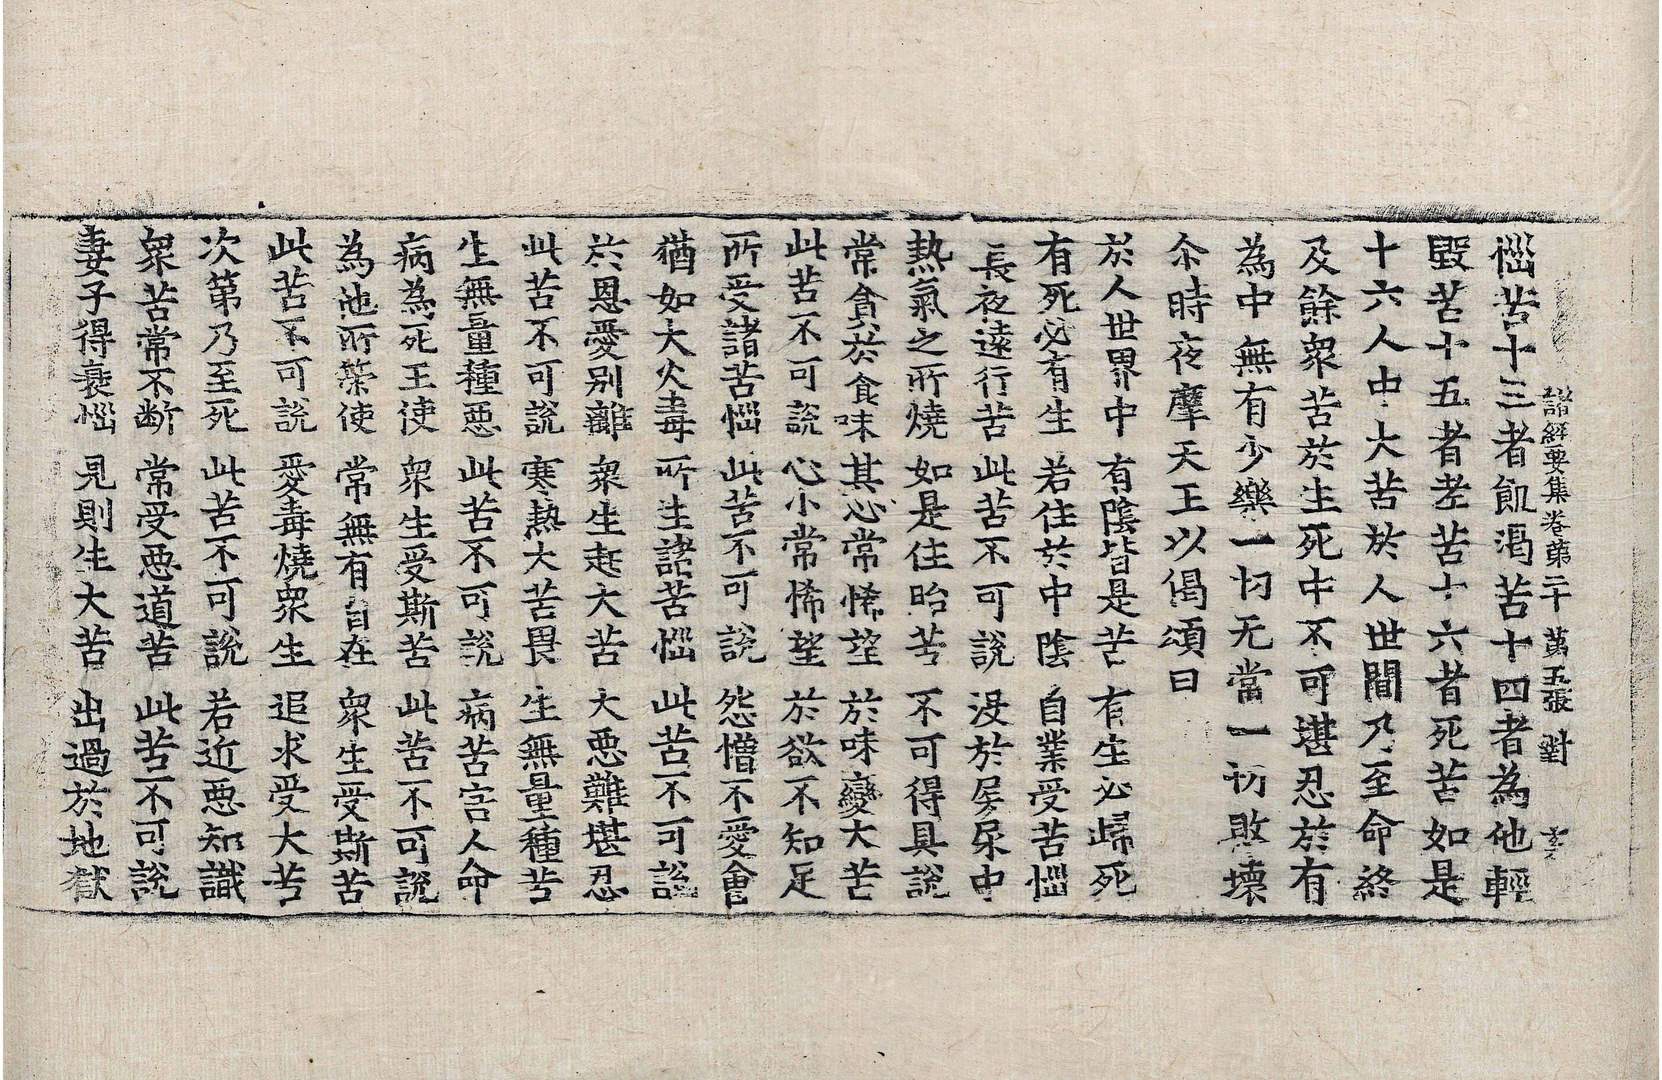 惱苦十三者飢渴苦十四者為他輕
毀苦十五者老苦十六者死苦如是
十六人中大苦於人世間乃至命終
及餘衆苦於生死中不可堪忍於有
為中無有少樂一切无當一切敗壞
尒時夜摩天王以偈頌曰
於人世界中 有陰皆是苦 有生必歸死
有死必有生 若住於中陰 自業受苦惱
長夜遠行苦 此苦不可說 没於屎尿中
熱氣之所燒 如是住胎苦 不可得具說
常貪於食味 其心常悕望 於味變大苦
此苦不可說 心小常悕望 於欲不知足
所受諸苦惱 此苦不可說 怨憎不愛會
猶如大火毒 所生諸苦惱 此苦不可說
於恩愛别離 衆生趣大苦 大惡難堪忍
此苦不可說 寒熱大苦畏 生無量種苦
生無量種惡 此苦不可說 病苦害人命
病為死王使 衆生受斯苦 此苦不可說
為他所策使 常無有自在 衆生受斯苦
此苦不可說 愛毒燒衆生 追求受大苦
次第乃至死 此苦不可說 若近惡知識
衆苦常不断 常受惡道苦 此苦不可說
妻子得衰惱 見則生大苦 出過於地獄
諸經要集卷第二十 第五張 對